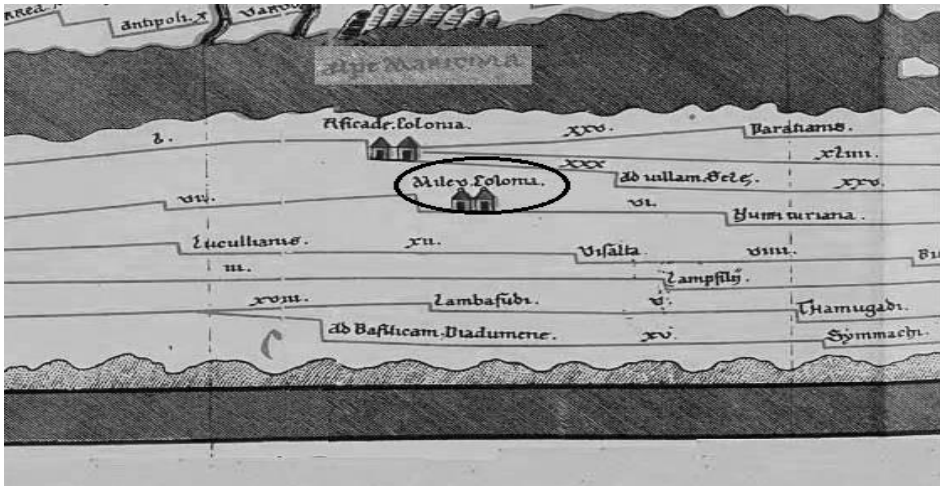 antipoli. x
Alpe Maritima
Rusicade. Colonia.
l.
xxv.
Paratianis.
xxx
xliiii.
Milev. Colonia.
ad uillam. Sele.
xxv.
vii.
vi.
Numituriana.
Lucullianis.
xii.
Visalta
viiii.
iii.
Lampsilij.
xviii.
Lambasudi.
v.
Thamugadi.
ad Basilicam. Diadumene.
xv.
Symmachi